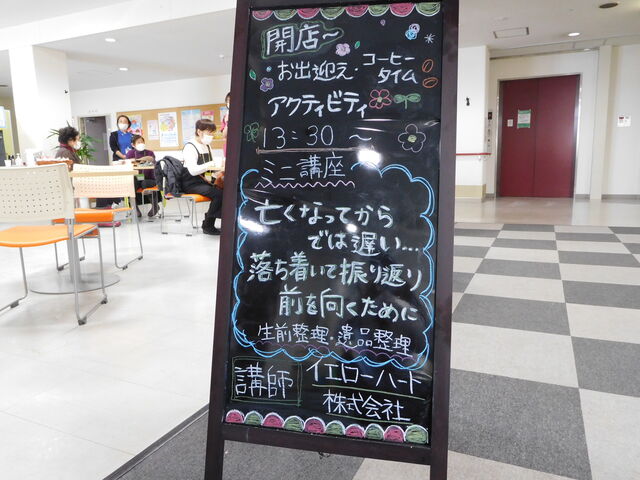 開店〜
お出迎え・コーヒー
タイム
アクティビティ
13:30〜
ミニ講座
亡くなってから
では遅い…
落ち着いて振り返り
前を向くために
生前整理・遺品整理
講師
イエローハート
株式会社